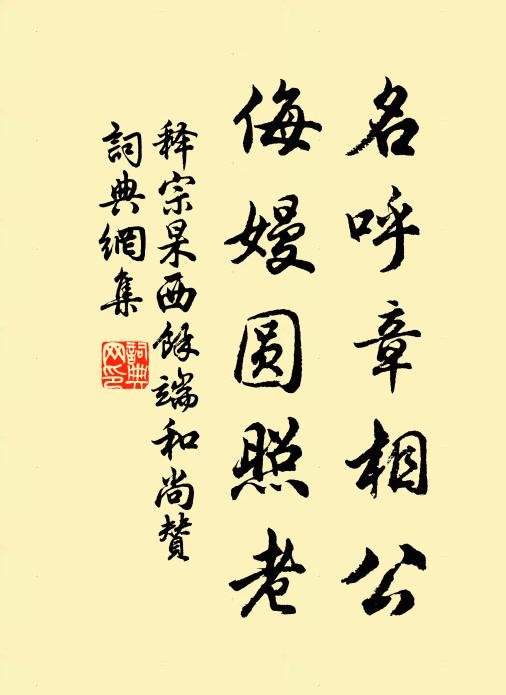 名呼章相公
侮嫚圆照老
释宗杲西餘端和尚赞
詞典網集
詞典網印